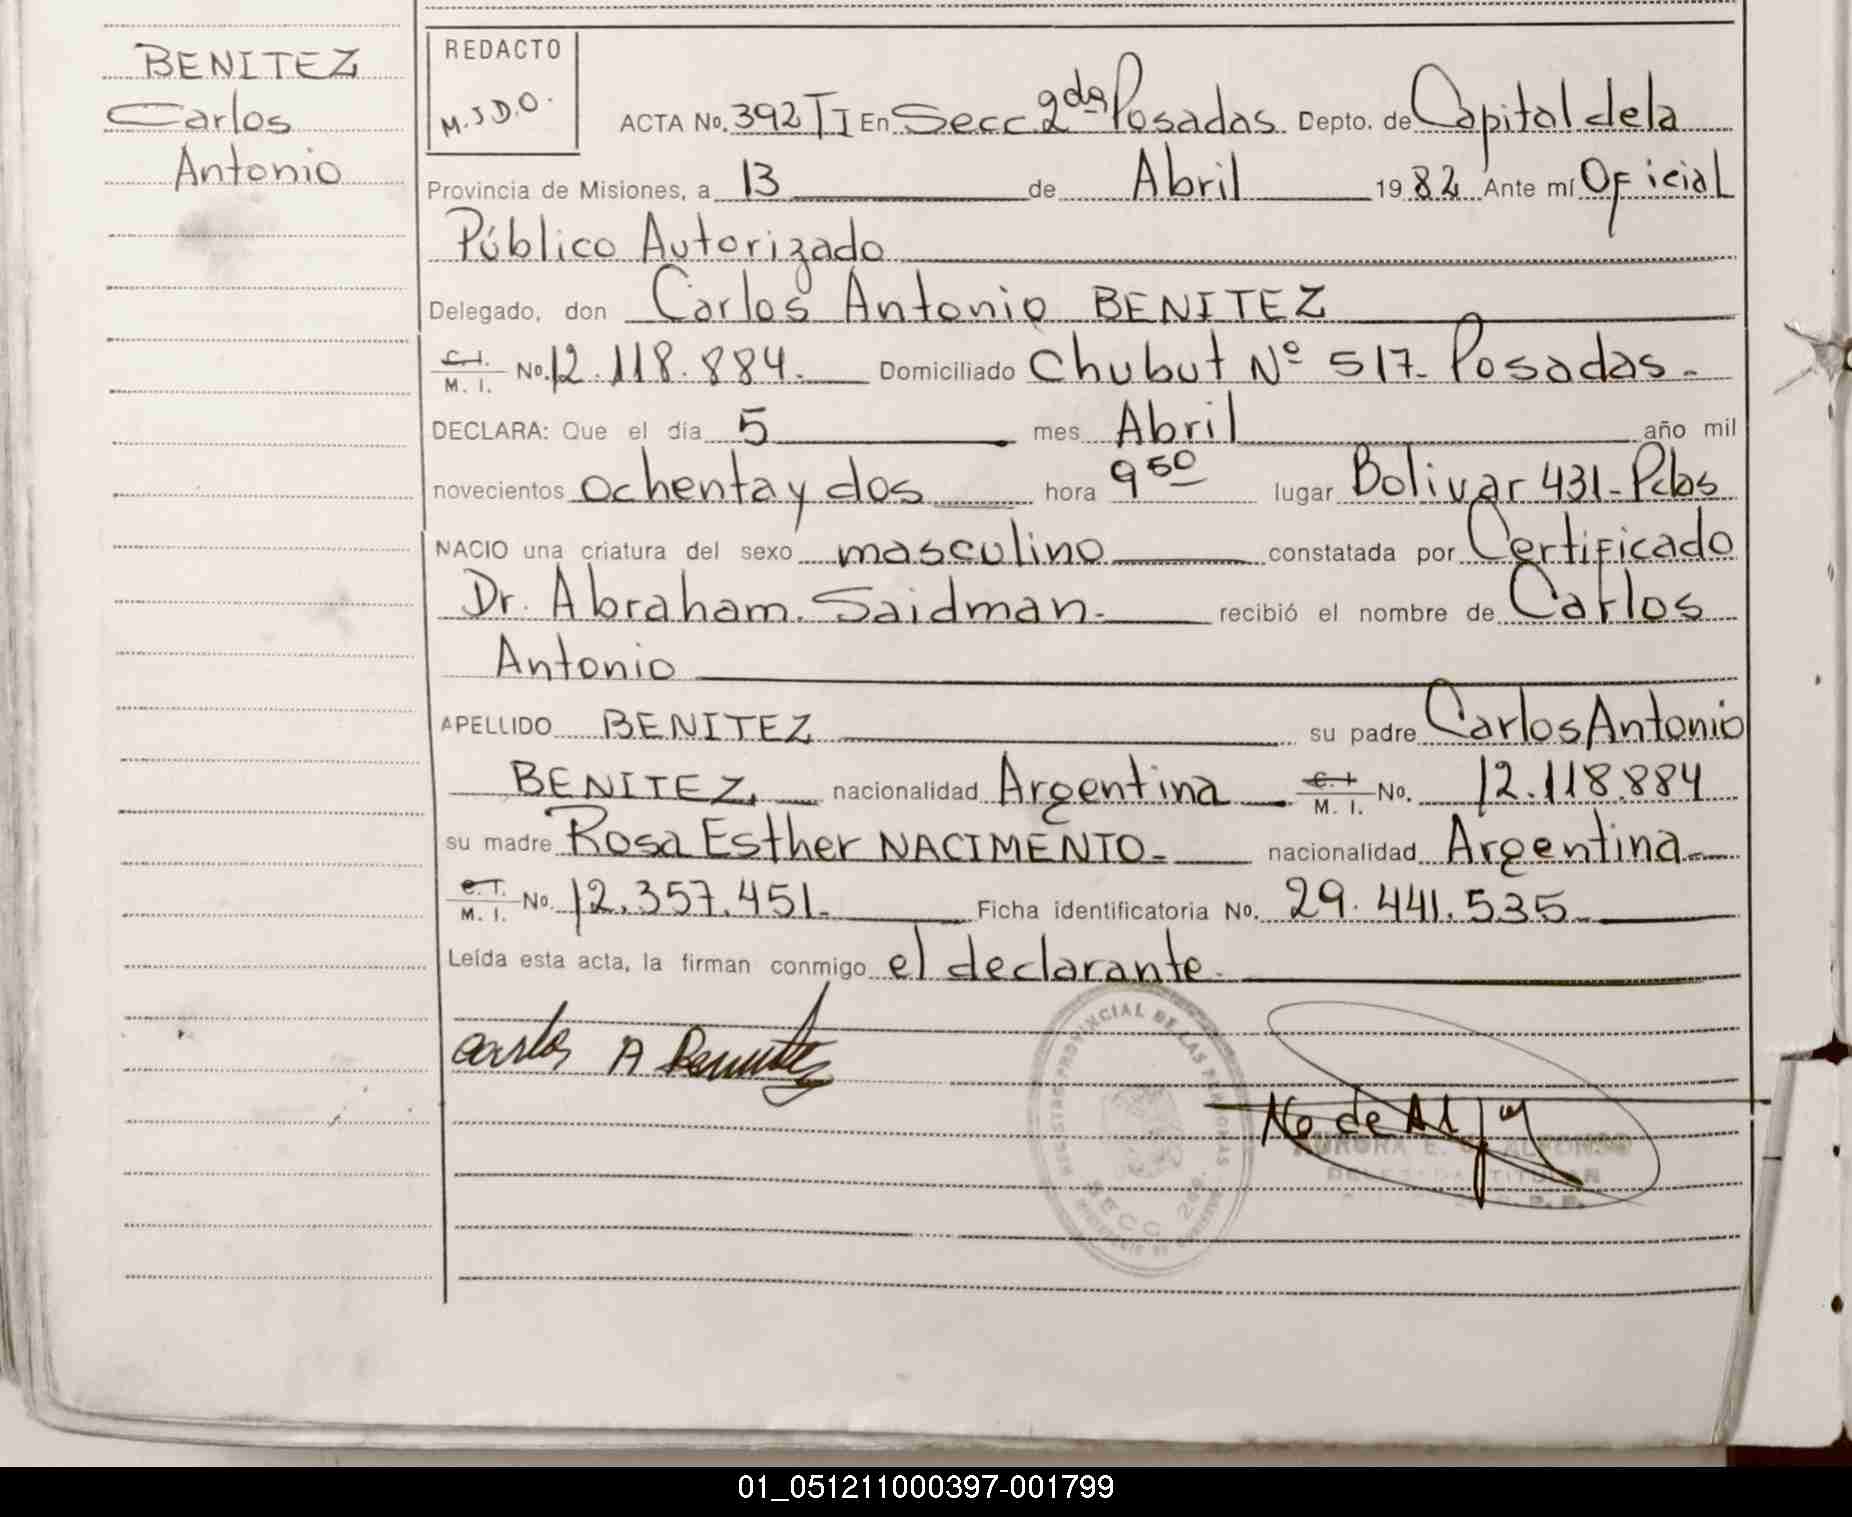 BENITEZ
Carlos
Antonio
REDACTO
M.J.D.O.
ACTA No. 392 TI En Secc. 2da Posadas Depto. de Capital de la
Provincia de Misiones, a 13 de Abril 1982 Ante mí Oficial
Público Autorizado
Delegado, don Carlos Antonio BENITEZ
C.I. M. I. No. 12.118.884. Domiciliado Chubut Nº 517- Posadas.
DECLARA: Que el día 5 mes Abril año mil
novecientos ochenta y dos hora 9 50 lugar Bolivar 431- Pdas
NACIO una criatura del sexo masculino constatada por Certificado
Dr. Abraham. Saidman. recibió el nombre de Carlos
Antonio
APELLIDO BENITEZ su padre Carlos Antonio
BENITEZ. nacionalidad Argentina C.I. M. I. No. 12.118.884
su madre Rosa Esther NACIMENTO- nacionalidad Argentina
C.I. M. I. No. 12.357.451. Ficha identificatoria No. 29.441.535
Leída esta acta, la firman conmigo el declarante.
Carlos A Benitez
REGISTRO PROVINCIAL DE LAS PERSONAS
SECC. 2da.
AURORA E.
DELEGADA TITULAR
01_051211000397-001799